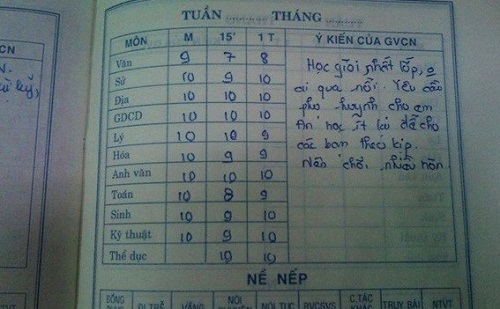 TUẦN ........ THÁNG ........
MÔN M 15' 1 T. Ý KIẾN CỦA GVCN
Văn 9 7 8
Sử 10 9 10
Địa 10 10 10
GDCD 10 10 10
Lý 10 10 9
Hóa 10 9 9
Anh văn 10 10 10
Toán 10 8 9
Sinh 10 9 10
Kỹ thuật 10 9 10
Thể dục 10 10
Học giỏi nhất lớp, o
ai qua nổi. Yêu cầu
phụ huynh cho em
ăn học ít lại để cho
các bạn theo kịp.
Nên chơi nhiều hơn
NỀ NẾP
ĐI TRỄ VẮNG NÓI NÓI TỤC C.TÁC KHÁC TRUY BÀI NTVT